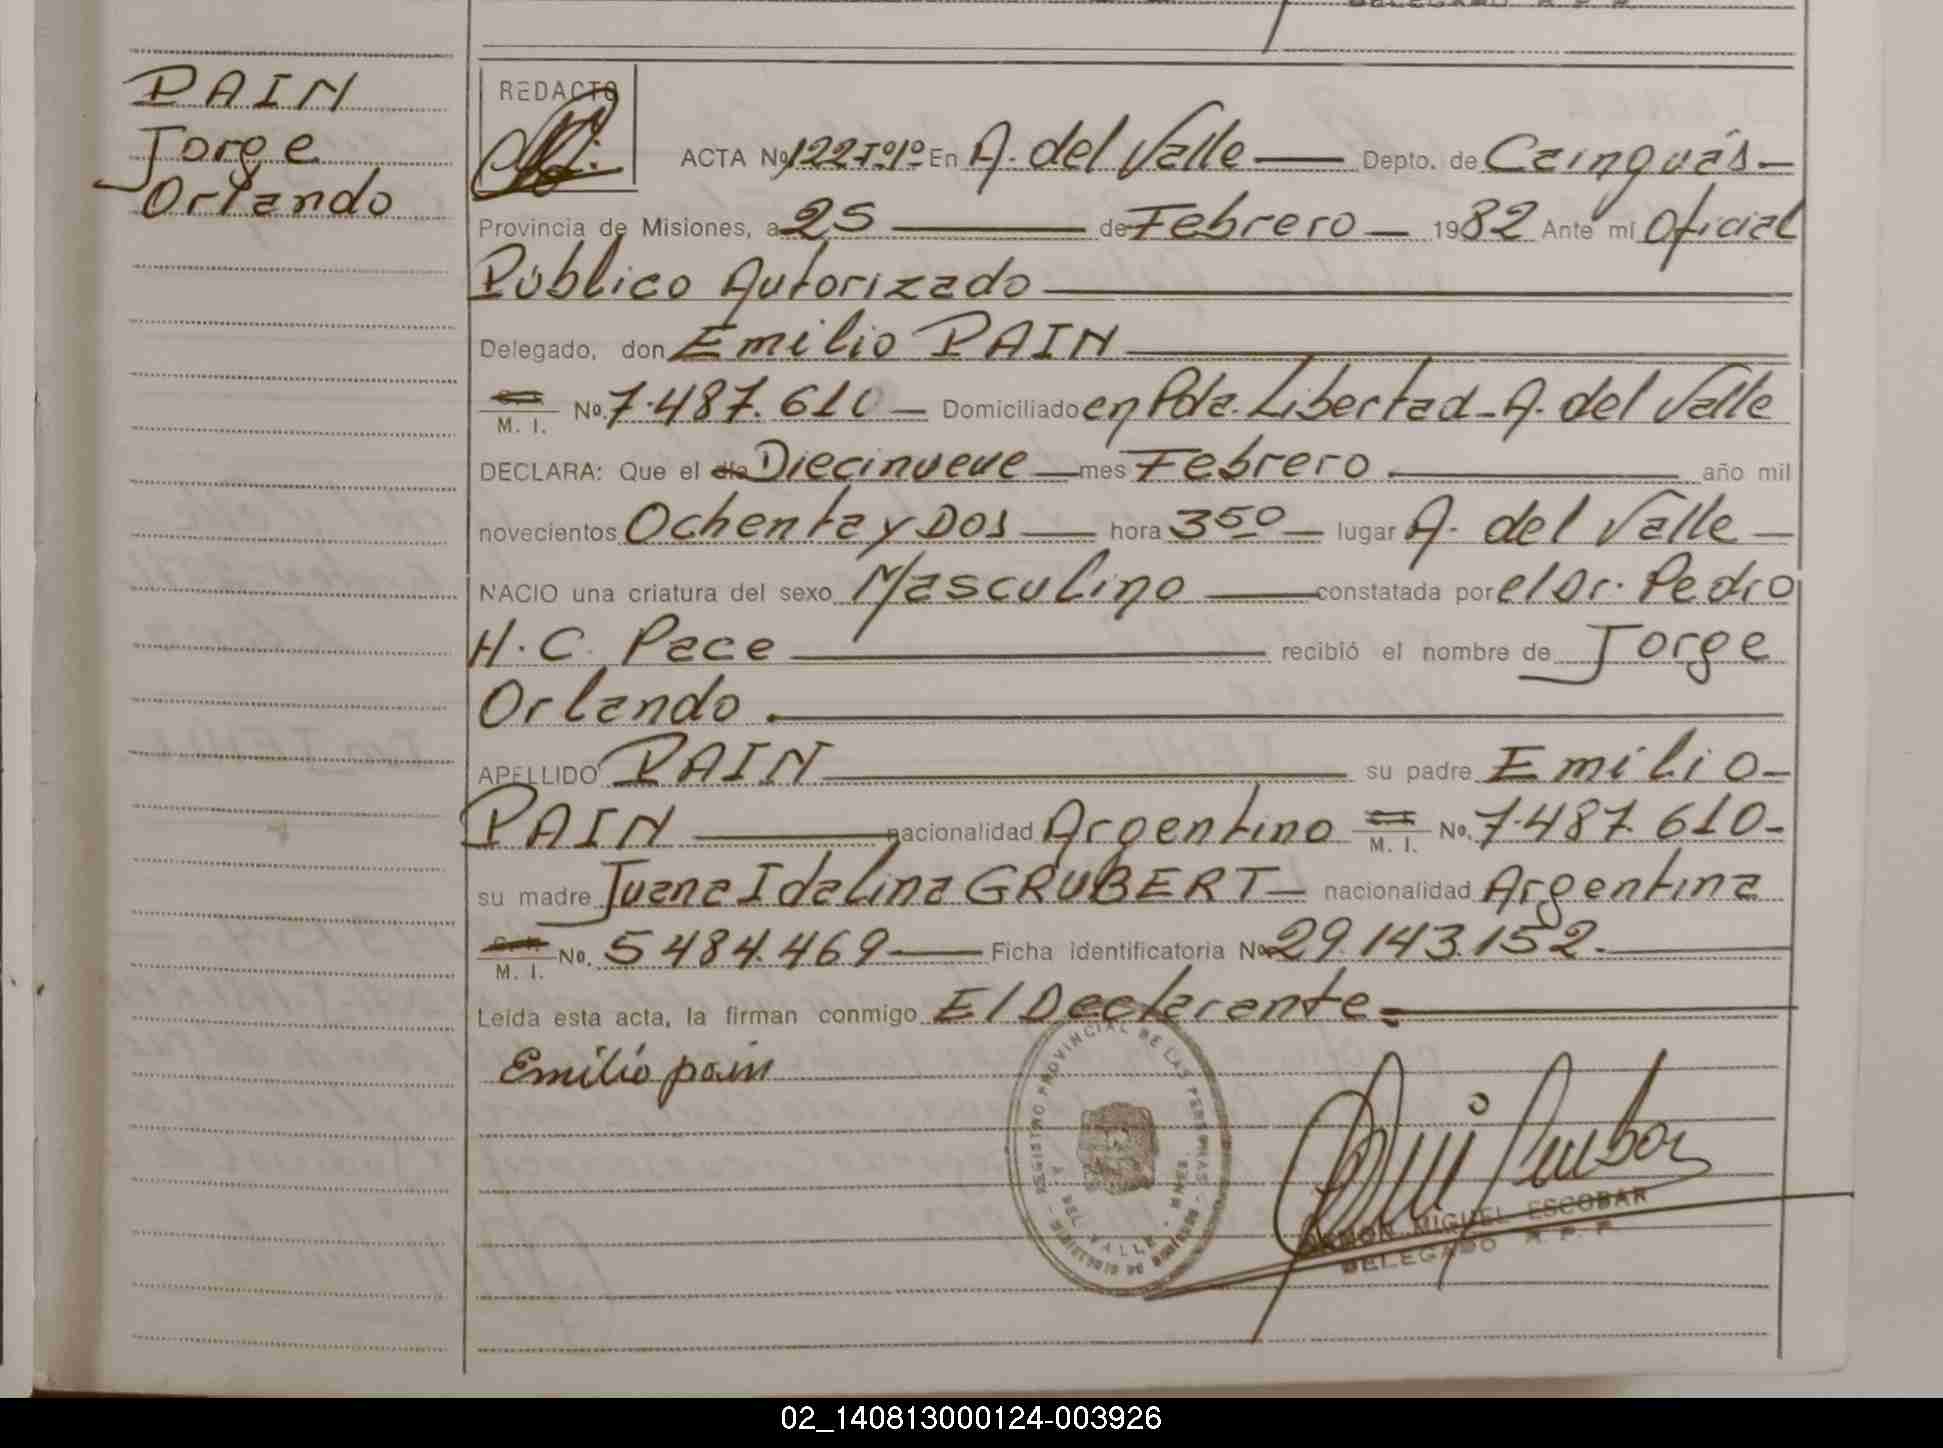 PAIN
Jorge
Orlando
REDACTO
ACTA Nº 122Tº1º En A. del Valle Depto. de Cainguás
Provincia de Misiones, a 25 de Febrero 1982 Ante mi Oficial
Público Autorizado
Delegado, don Emilio PAIN
M. I. No. 7.487.610 Domiciliado en Pda. Libertad - A. del Valle
DECLARA: Que el día Diecinueve mes Febrero año mil
novecientos Ochenta y Dos hora 3 50 lugar A. del Valle
NACIO una criatura del sexo Masculino constatada por el Dr. Pedro
H. C. Pace recibió el nombre de Jorge
Orlando
APELLIDO PAIN su padre Emilio
PAIN nacionalidad Argentino M. I. No. 7.487.610
su madre Juana Idalina GRUBERT nacionalidad Argentina
M. I. No. 5484.469 Ficha identificatoria No 29.143.152.
Leída esta acta, la firman conmigo El Declarante.
Emilio pain
REGISTRO PROVINCIAL DE LAS PERSONAS
DEL VALLE
RAMON MIGUEL ESCOBAR
DELEGADO R. P. P.
02_140813000124-003926